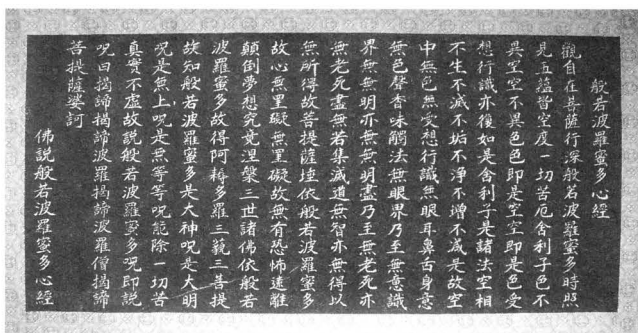 般若波羅蜜多心經
觀自在菩薩行深般若波羅蜜多時照
見五蘊皆空度一切苦厄舍利子色不
異空空不異色色即是空空即是色受
想行識亦復如是舍利子是諸法空相
不生不滅不垢不淨不增不減是故空
中無色無受想行識無眼耳鼻舌身意
無色聲香味觸法無眼界乃至無意識
界無無明亦無無明盡乃至無老死亦
無老死盡無苦集滅道無智亦無得以
無所得故菩提薩埵依般若波羅蜜多
故心無罣礙無罣礙故無有恐怖遠離
顛倒夢想究竟涅槃三世諸佛依般若
波羅蜜多故得阿耨多羅三藐三菩提
故知般若波羅蜜多是大神呪是大明
呪是無上呪是無等等呪能除一切苦
真實不虛故說般若波羅蜜多呪即說
呪曰揭諦揭諦波羅揭諦波羅僧揭諦
菩提薩婆訶
佛說般若波羅蜜多心經